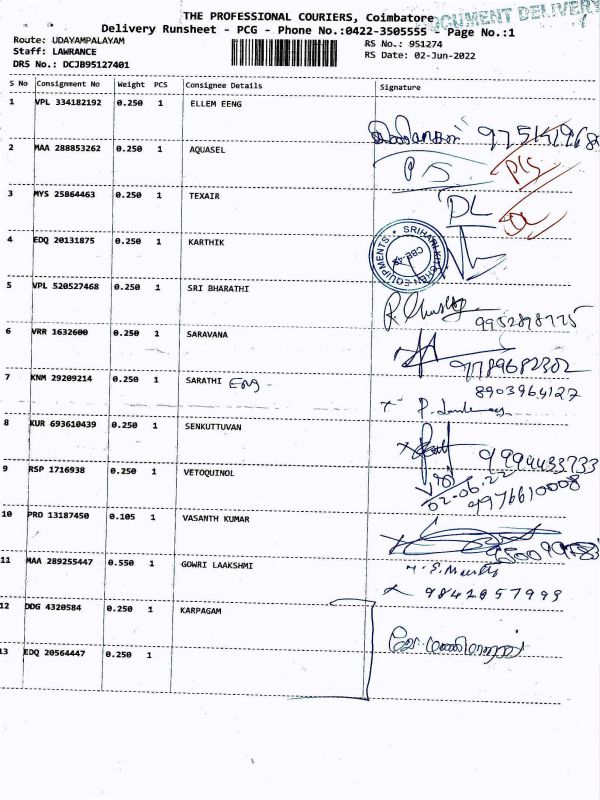 THE PROFESSIONAL COURIERS, Coimbatore
DOCUMENT DELIVERY
Delivery Runsheet - PCG - Phone No.:0422-3505555 - Page No.:1
Route: UDAYAMPALAYAM
RS No.: 951274
Staff: LAWRANCE
RS Date: 02-Jun-2022
DRS No.: DCJB95127401
S No Consignment No Weight PCS Consignee Details Signature
1 VPL 334182192 0.250 1 ELLEM EENG
2 MAA 288853262 0.250 1 AQUASEL
PS
3 MYS 25864463 0.250 1 TEXAIR
DL
4 EDQ 20131875 0.250 1 KARTHIK
SRIHARI KITCHEN EQUIPMENTS
5 VPL 520527468 0.250 1 SRI BHARATHI
6 VRR 1632600 0.250 1 SARAVANA
9789682302
7 KNM 29209214 0.250 1 SARATHI Eng
8903964127
8 KUR 693610439 0.250 1 SENKUTTUVAN
9 RSP 1716938 0.250 1 VETOQUINOL
02-06-22
9976610008
10 PRO 13187450 0.105 1 VASANTH KUMAR
11 MAA 289255447 0.550 1 GOWRI LAAKSHMI
12 DDG 4320584 0.250 1 KARPAGAM
13 EDQ 20564447 0.250 1